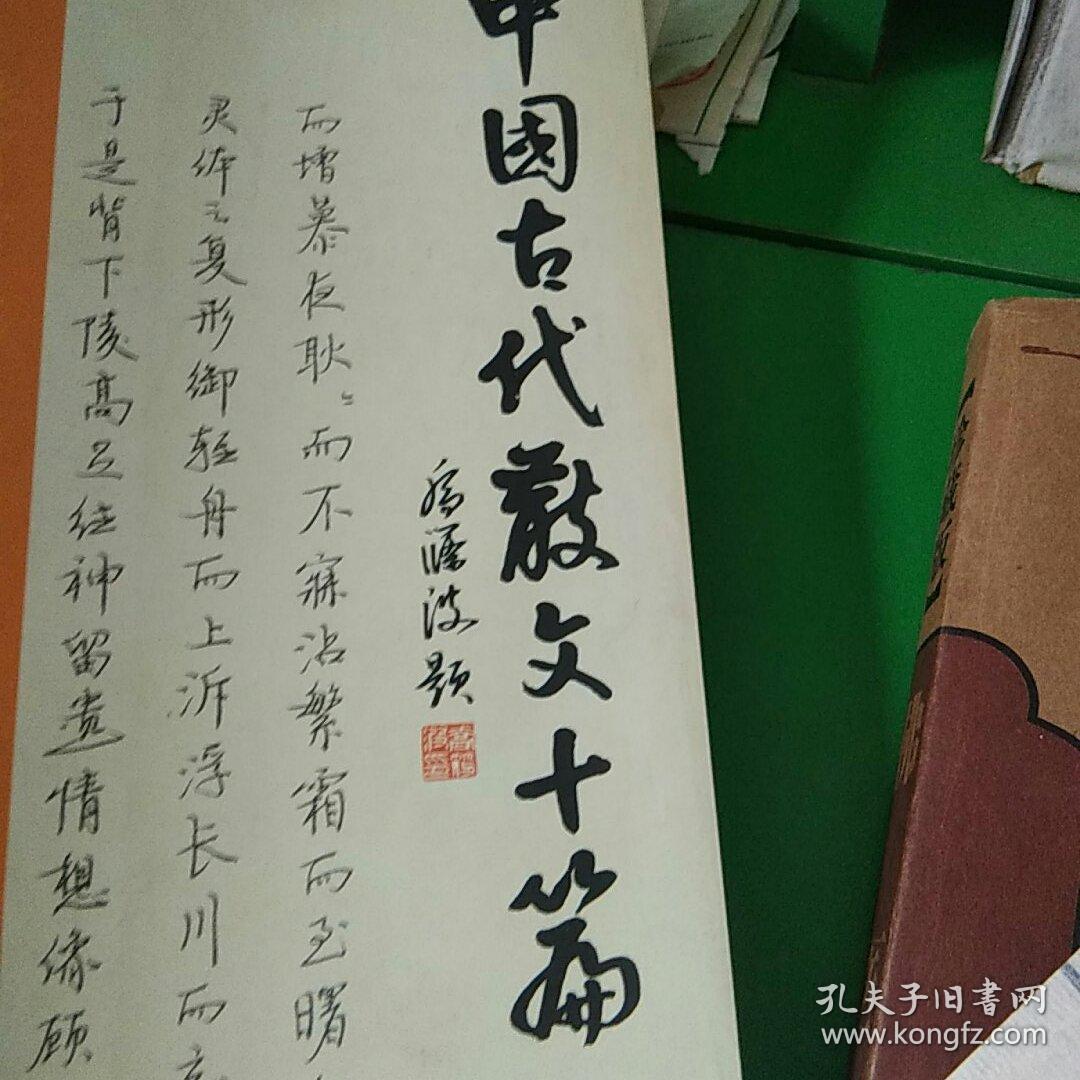 中國古代散文十篇
题
于是背下陵高足往神留遗情想像顾
灵体之复形御轻舟而上泝浮长川而
而增慕夜耿〻而不寐沾繁霜而至曙
孔夫子旧书网
www.kongfz.com